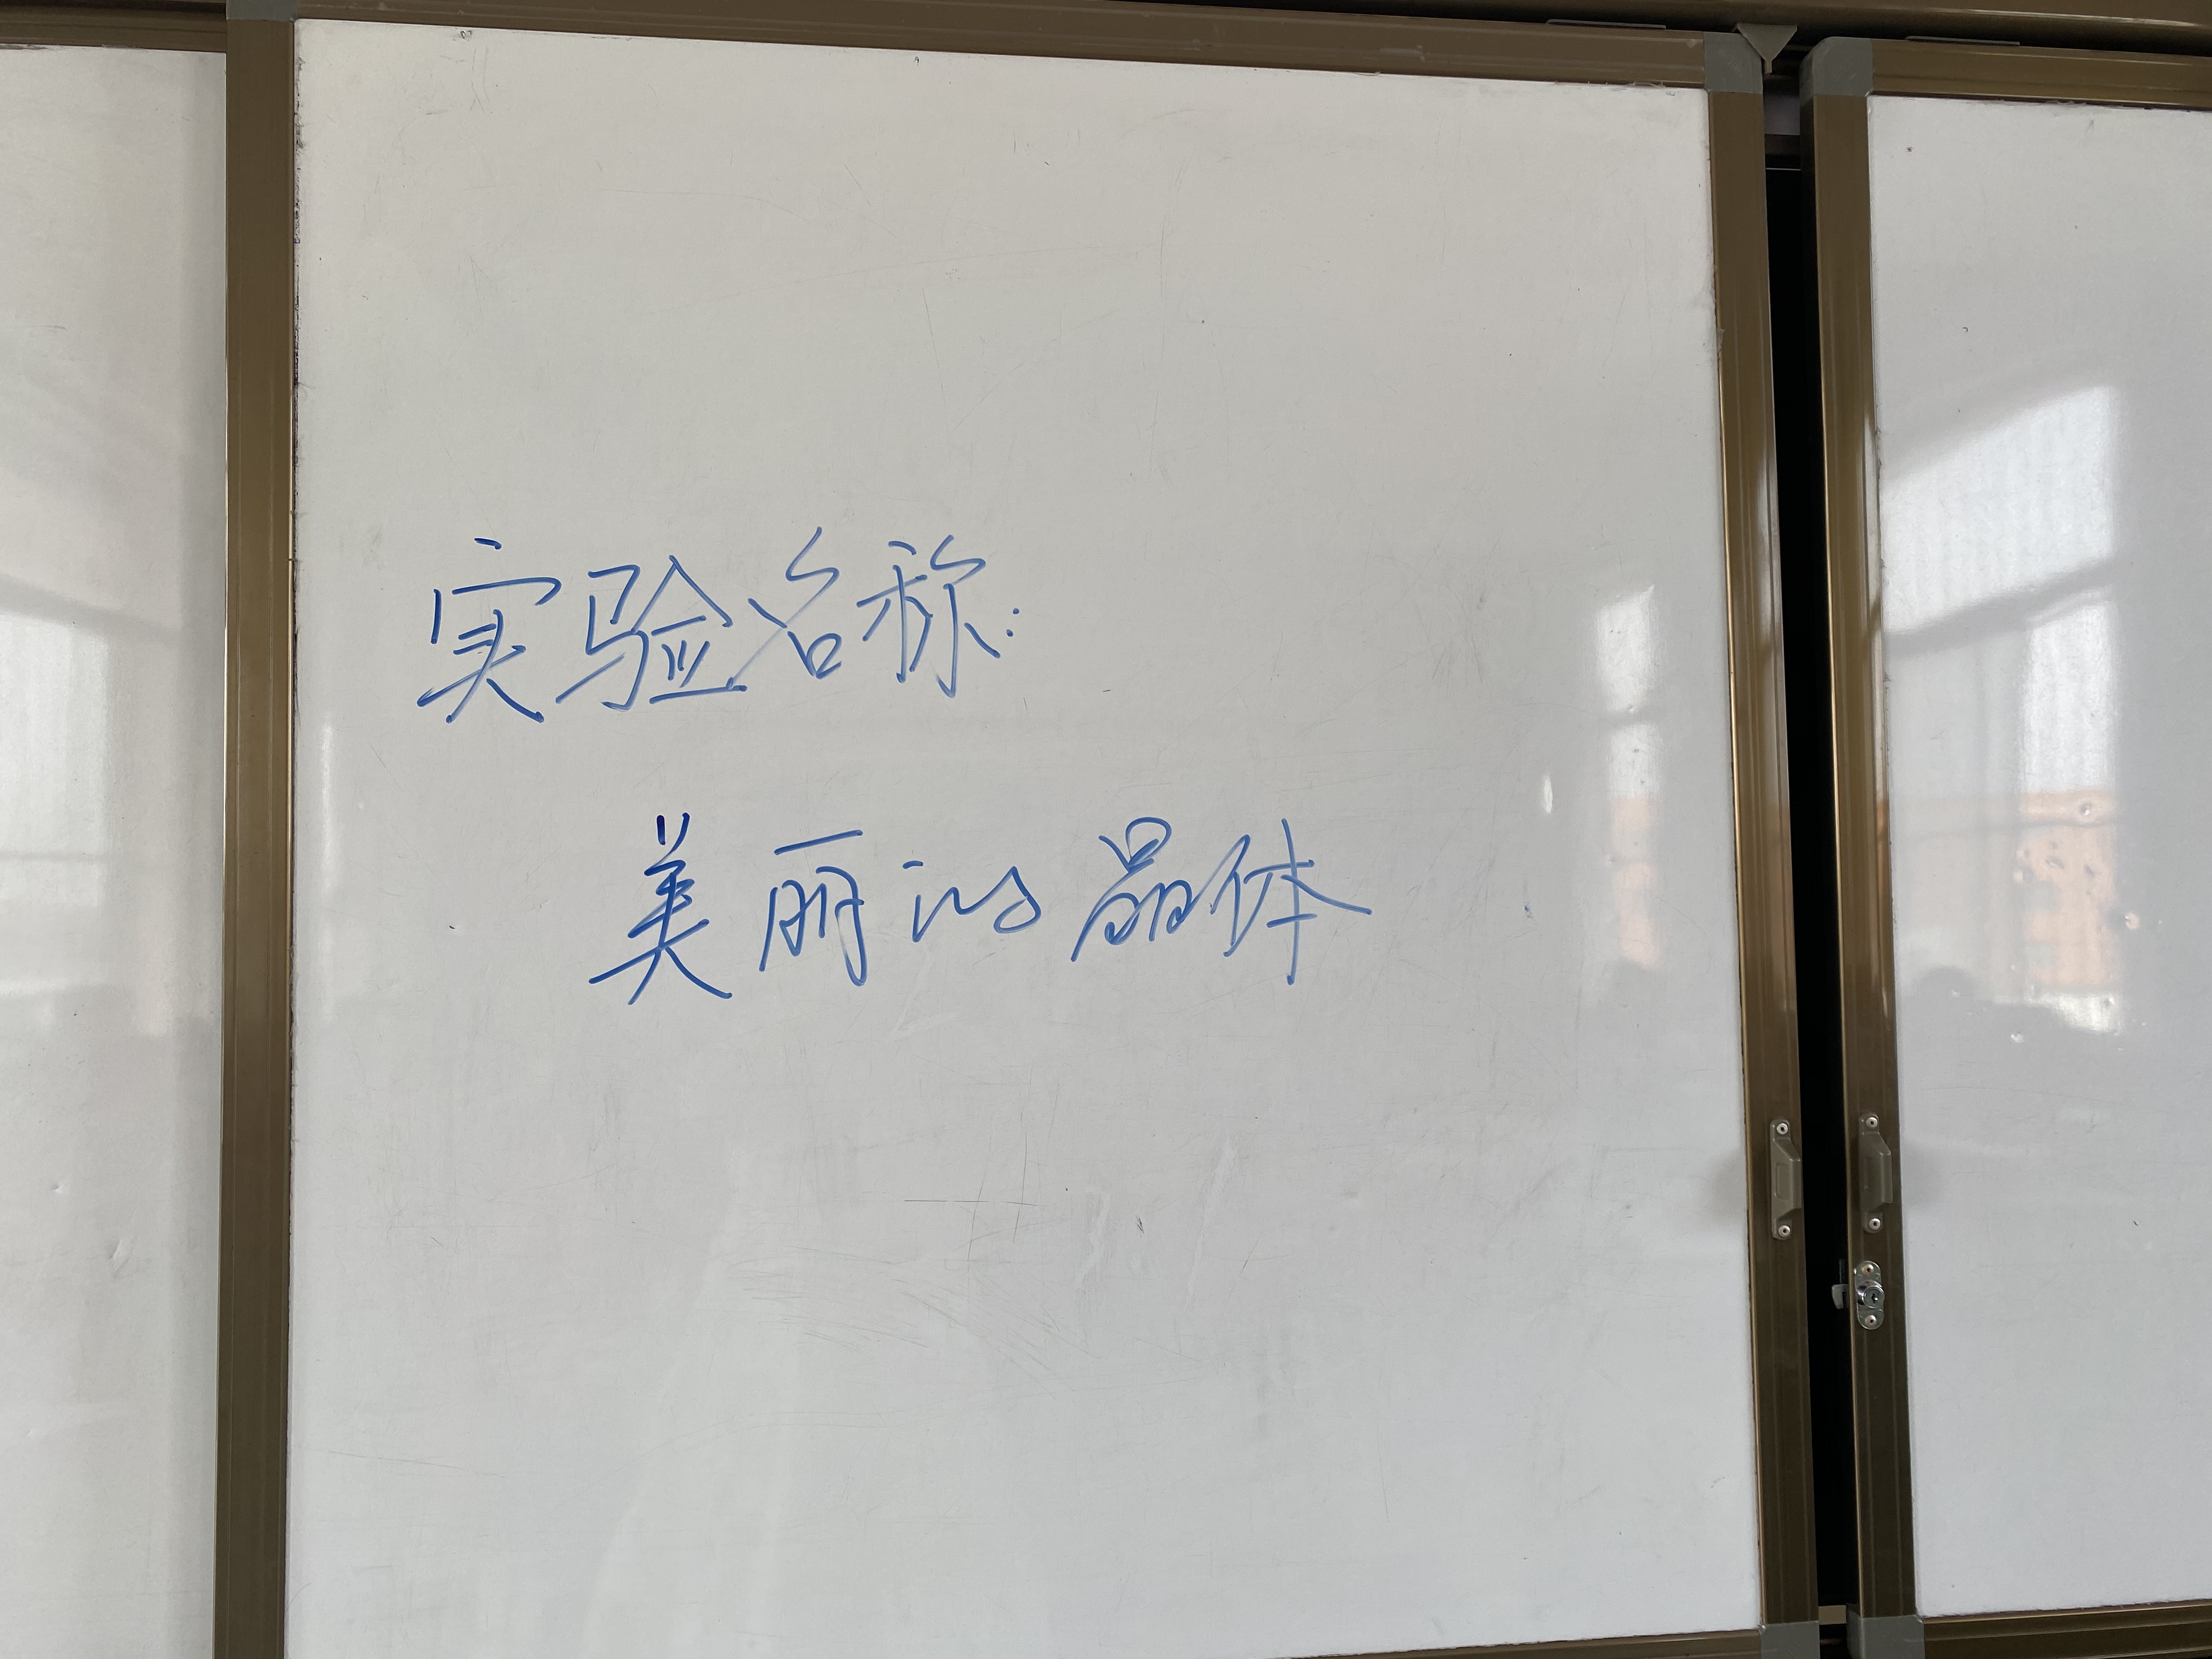 实验名称:
美丽的晶体